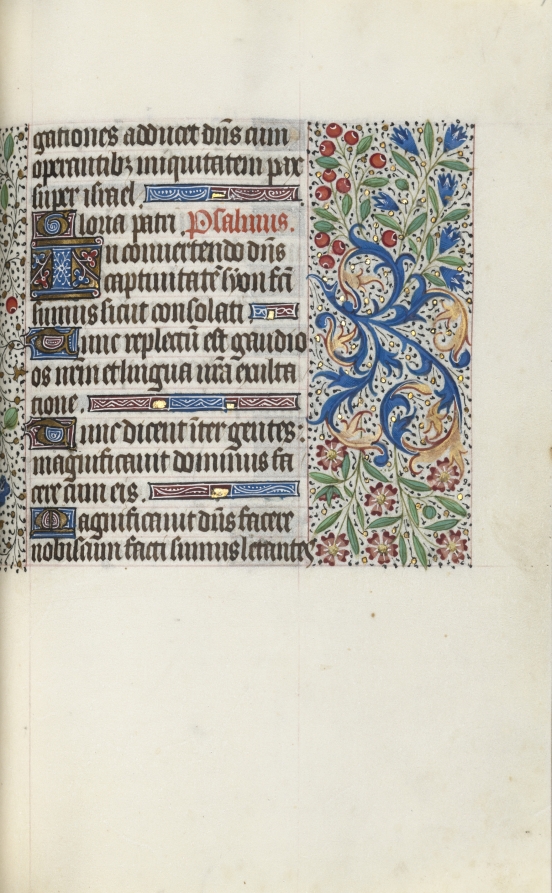 gationes adducet dn̄s cum
operantibꝫ iniquitatem pax
super israel.
Gloria patri Psalmus.
In conuertendo dn̄s
captiuitatē syon fcī
sumus sicut consolati
Tunc repletū est gaudio
os nr̄m et lingua nr̄a exulta
tione.
Tunc dicent īter gentes:
magnificauit dominus fa
cere cum eis.
Magnificauit dn̄s facere
nobiscum facti sumus letantes